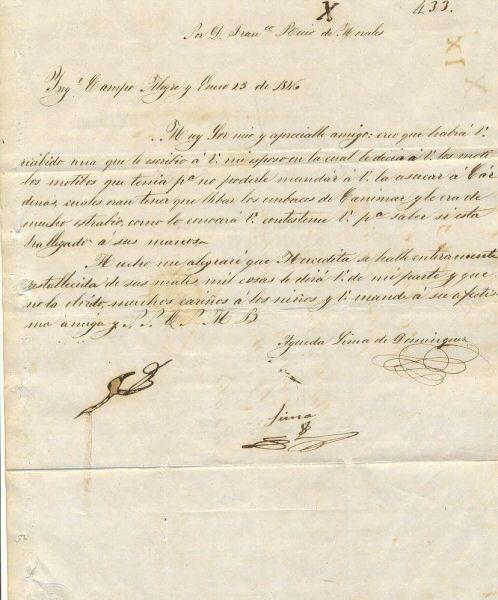 X
433.
XI
X
Sor D. Fran.co Recio de Morales
Yng.o Campo Alegre y Enero 23 de 1846
Muy Sor mio y apreciable amigo: creo que habrá V.
recibido una que le escribio á V. mi esposo en la cual le decia á V. los moti
los motibos que tenia p.a no poderle mandar á V. la asucar a Car
denas, cuales eran tener que llebar los embaces de Canimar y le era de
mucho estrabio, como lo conocerá V. contesteme V. p.a saber si esta
ha llegado a sus manos.
Mucho me alegraré que Merceditas se halle enteramente
restablecida de sus males, mil cosas le dirá V. de mi parte y que
no la olvido, muchos cariños á los niños y V. mande á su afectisi
ma amiga y
Agueda Lima de Dominguez
Lima